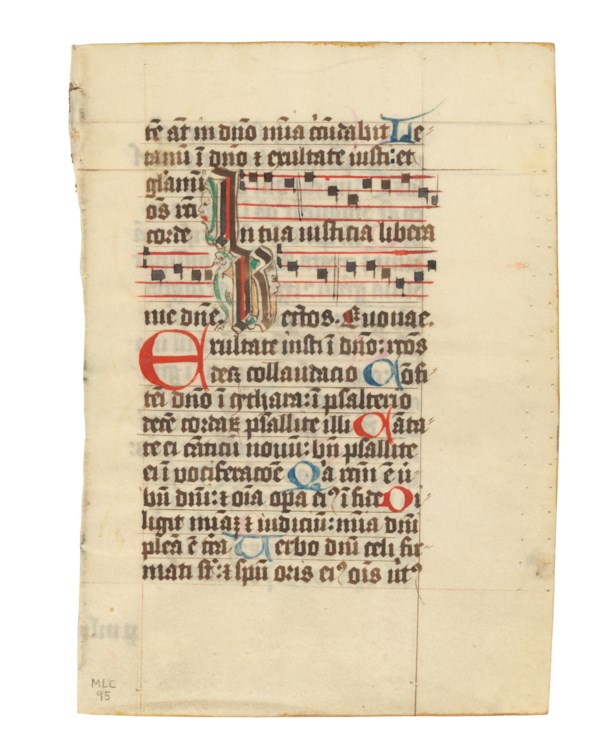 tē āt in dño mīa cūdabit Le
tamī ī dño ⁊ exultate iusti: et
glāmī
oēs rēi
corde In tua iusticia libera
me dñe. Rectos. Euouae.
Exultate iusti ī dño: rēos
decȝ collaudacio Cōfi
tēi dño ī cythara: ī psalterio
decē cordaꝝ psallite illi Cāta
te ei cāticū nouū: bñ psallite
ei ī vociferacōe Qa rcm̄ ē ū
bū dñi: ⁊ oīa opa eiꝰ ī fide Di
ligit mīaȝ ⁊ iudiciū: mīa dñi
plēa ē tr̄a Uerbo dñi celi fir
mati st̄: ⁊ spū oris eiꝰ oīs ūtꝰ
MLC
95